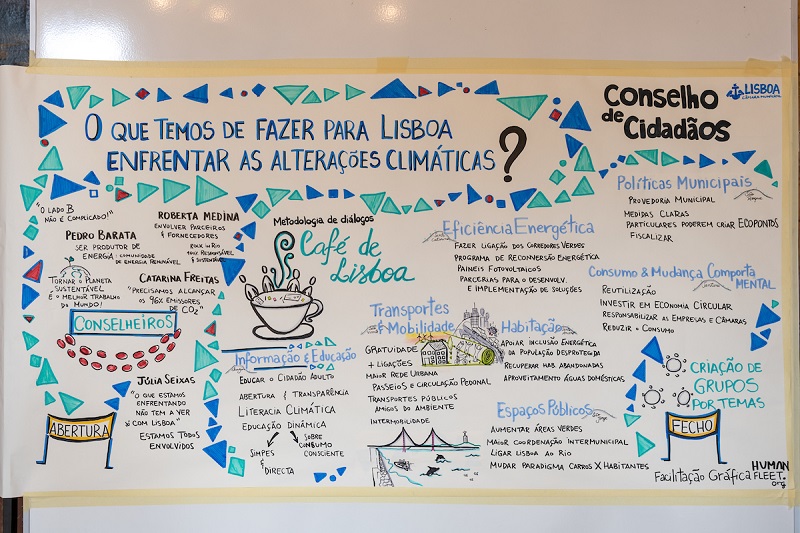 O QUE TEMOS DE FAZER PARA LISBOA
ENFRENTAR AS ALTERAÇÕES CLIMÁTICAS?
Conselho
de
Cidadãos
LISBOA
CÂMARA MUNICIPAL
"O LADO B
NÃO É COMPLICADO!"
PEDRO BARATA
SER PRODUTOR DE
ENERGIA: COMUNIDADE
DE ENERGIA RENOVÁVEL
TORNAR O PLANETA
SUSTENTÁVEL
É O MELHOR TRABALHO
DO MUNDO!
ROBERTA MEDINA
ENVOLVER PARCEIROS
& FORNECEDORES
ROCK IN RIO
100% RESPONSÁVEL
& SUSTENTÁVEL
CATARINA FREITAS
"PRECISAMOS ALCANÇAR
OS 96% EMISSORES
DE CO2"
CONSELHEIROS
JÚLIA SEIXAS
"O QUE ESTAMOS
ENFRENTANDO
NÃO TEM A VER
SÓ COM LISBOA"
ESTAMOS TODOS
ENVOLVIDOS
ABERTURA
Metodologia de diálogos
Café de
Lisboa
Informação & Educação
EDUCAR O CIDADÃO ADULTO
ABERTURA & TRANSPARÊNCIA
LITERACIA CLIMÁTICA
EDUCAÇÃO DINÂMICA
SIMPES
&
DIRECTA
SOBRE
CONSUMO
CONSCIENTE
Transportes
& Mobilidade
GRATUIDADE
+ LIGAÇÕES
MAIOR REDE URBANA
PASSEIOS E CIRCULAÇÃO PEDONAL
TRANSPORTES PÚBLICOS
AMIGOS DO AMBIENTE
INTERMOBILIDADE
Eficiência Energética
FAZER LIGAÇÃO DOS CORREDORES VERDES
PROGRAMA DE RECONVERSÃO ENERGÉTICA
PAINEIS FOTOVOLTAICOS
PARCERIAS PARA O DESENVOLV.
E IMPLEMENTAÇÃO DE SOLUÇÕES
Habitação
APOIAR INCLUSÃO ENERGÉTICA
DA POPULAÇÃO DESPROTEGIDA
RECUPERAR HAB. ABANDONADAS
APROVEITAMENTO ÁGUAS DOMÉSTICAS
Espaços Públicos
AUMENTAR ÁREAS VERDES
MAIOR COORDENAÇÃO INTERMUNICIPAL
LIGAR LISBOA AO RIO
MUDAR PARADIGMA CARROS X HABITANTES
Políticas Municipais
PROVEDORIA MUNICIPAL
MEDIDAS CLARAS
PARTICULARES PODEREM CRIAR ECOPONTOS
FISCALIZAR
Consumo & Mudança Comporta
MENTAL
REUTILIZAÇÃO
INVESTIR EM ECONOMIA CIRCULAR
RESPONSABILIZAR AS EMPRESAS E CÂMARAS
REDUZIR O CONSUMO
CRIAÇÃO DE
GRUPOS
POR TEMAS
FECHO
Facilitação Gráfica
HUMAN
FLEET.
org